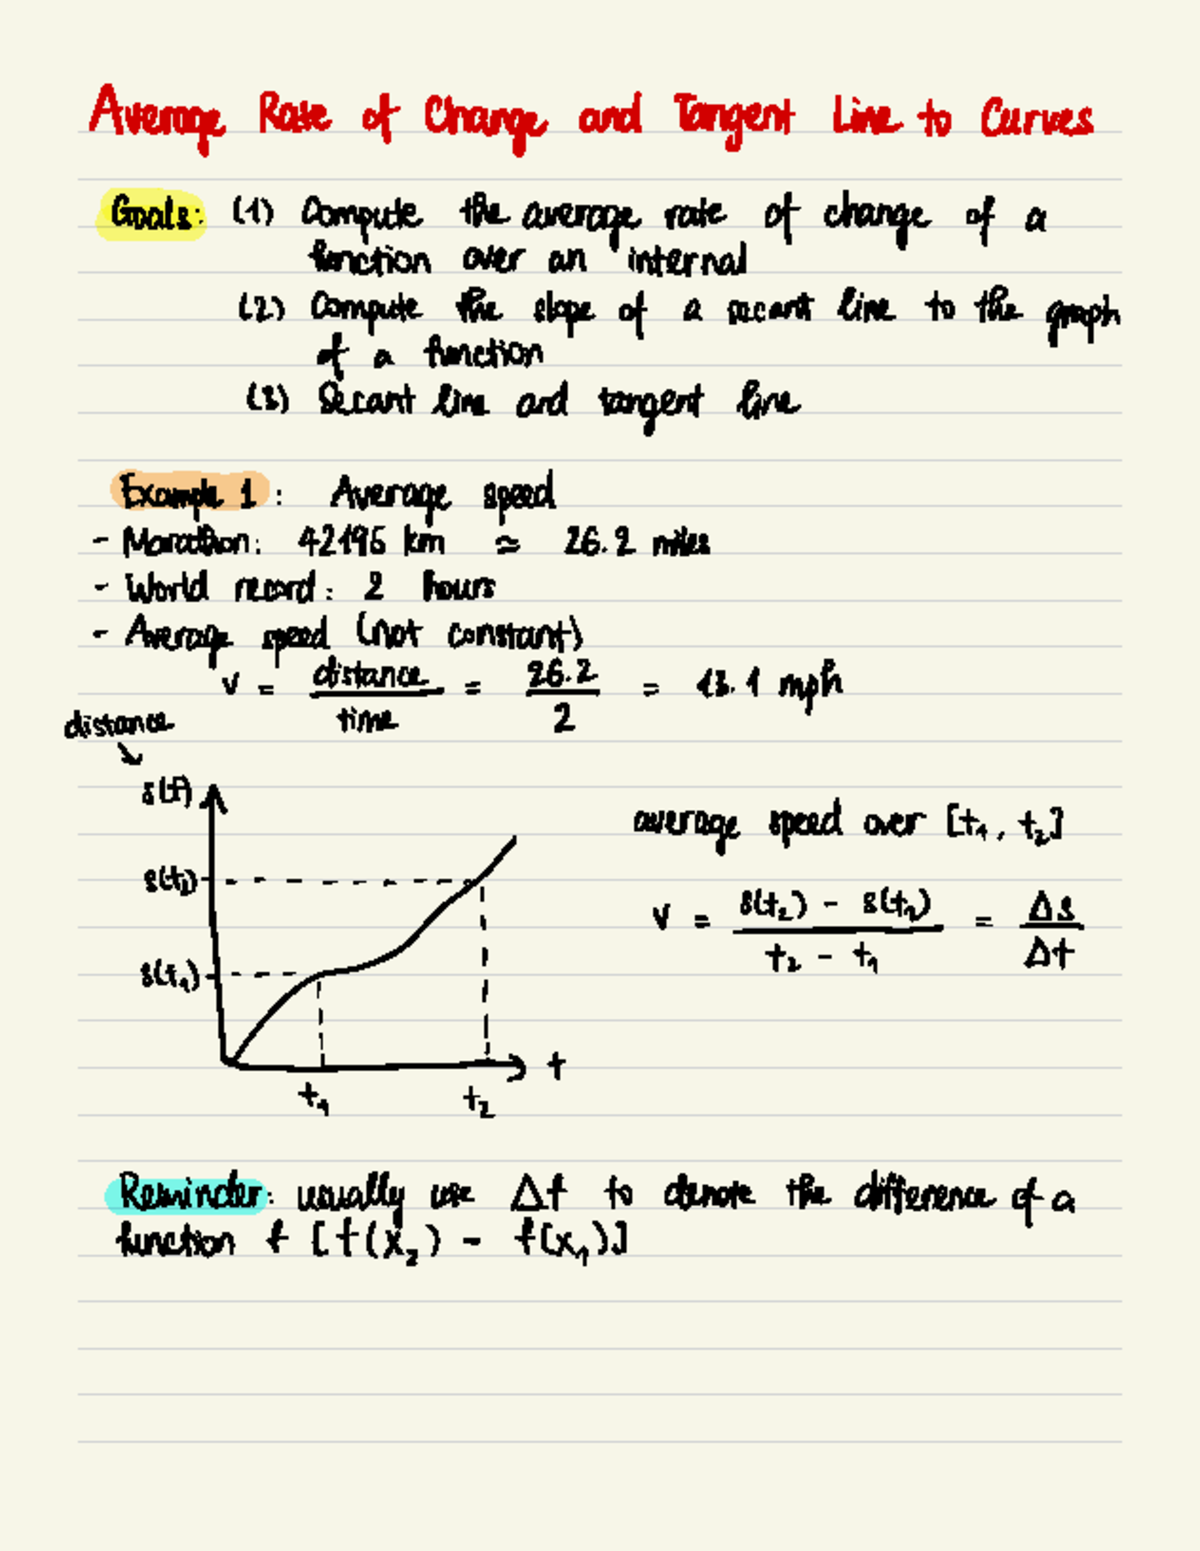 Average Rate of Change and Tangent Line to Curves
Goals: (1) Compute the average rate of change of a
function over an internal
(2) Compute the slope of a secant line to the graph
of a function
(3) Secant line and tangent line
Example 1 : Average speed
- Marathon: 42195 km ≃ 26.2 miles
- World record: 2 hours
- Average speed (not constant)
v = distance / time = 26.2 / 2 = 13.1 mph
distance
s(t)
average speed over [t₁, t₂]
s(t₂)
v = s(t₂) - s(t₁) / t₂ - t₁ = Δs / Δt
s(t₁)
t
t₁ t₂
Reminder: usually use Δf to denote the difference of a
function f [f(x₂) - f(x₁)]